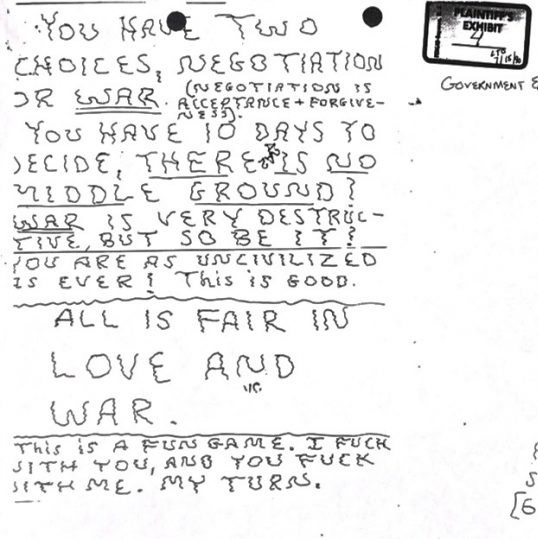 YOU HAVE TWO
CHOICES, NEGOTIATION
OR WAR. (NEGOTIATION IS
ACCEPTANCE + FORGIVE-
NESS).
YOU HAVE 10 DAYS TO
DECIDE, THERE IS NO
MIDDLE GROUND!
WAR IS VERY DESTRUC-
TIVE, BUT SO BE IT!
YOU ARE AS UNCIVILIZED
AS EVER! THIS IS GOOD.
ALL IS FAIR IN
LOVE AND
WAR.
THIS IS A FUN GAME. I FUCK
WITH YOU, AND YOU FUCK
WITH ME. MY TURN.
PLAINTIFF'S
EXHIBIT
4
GOVERNMENT E